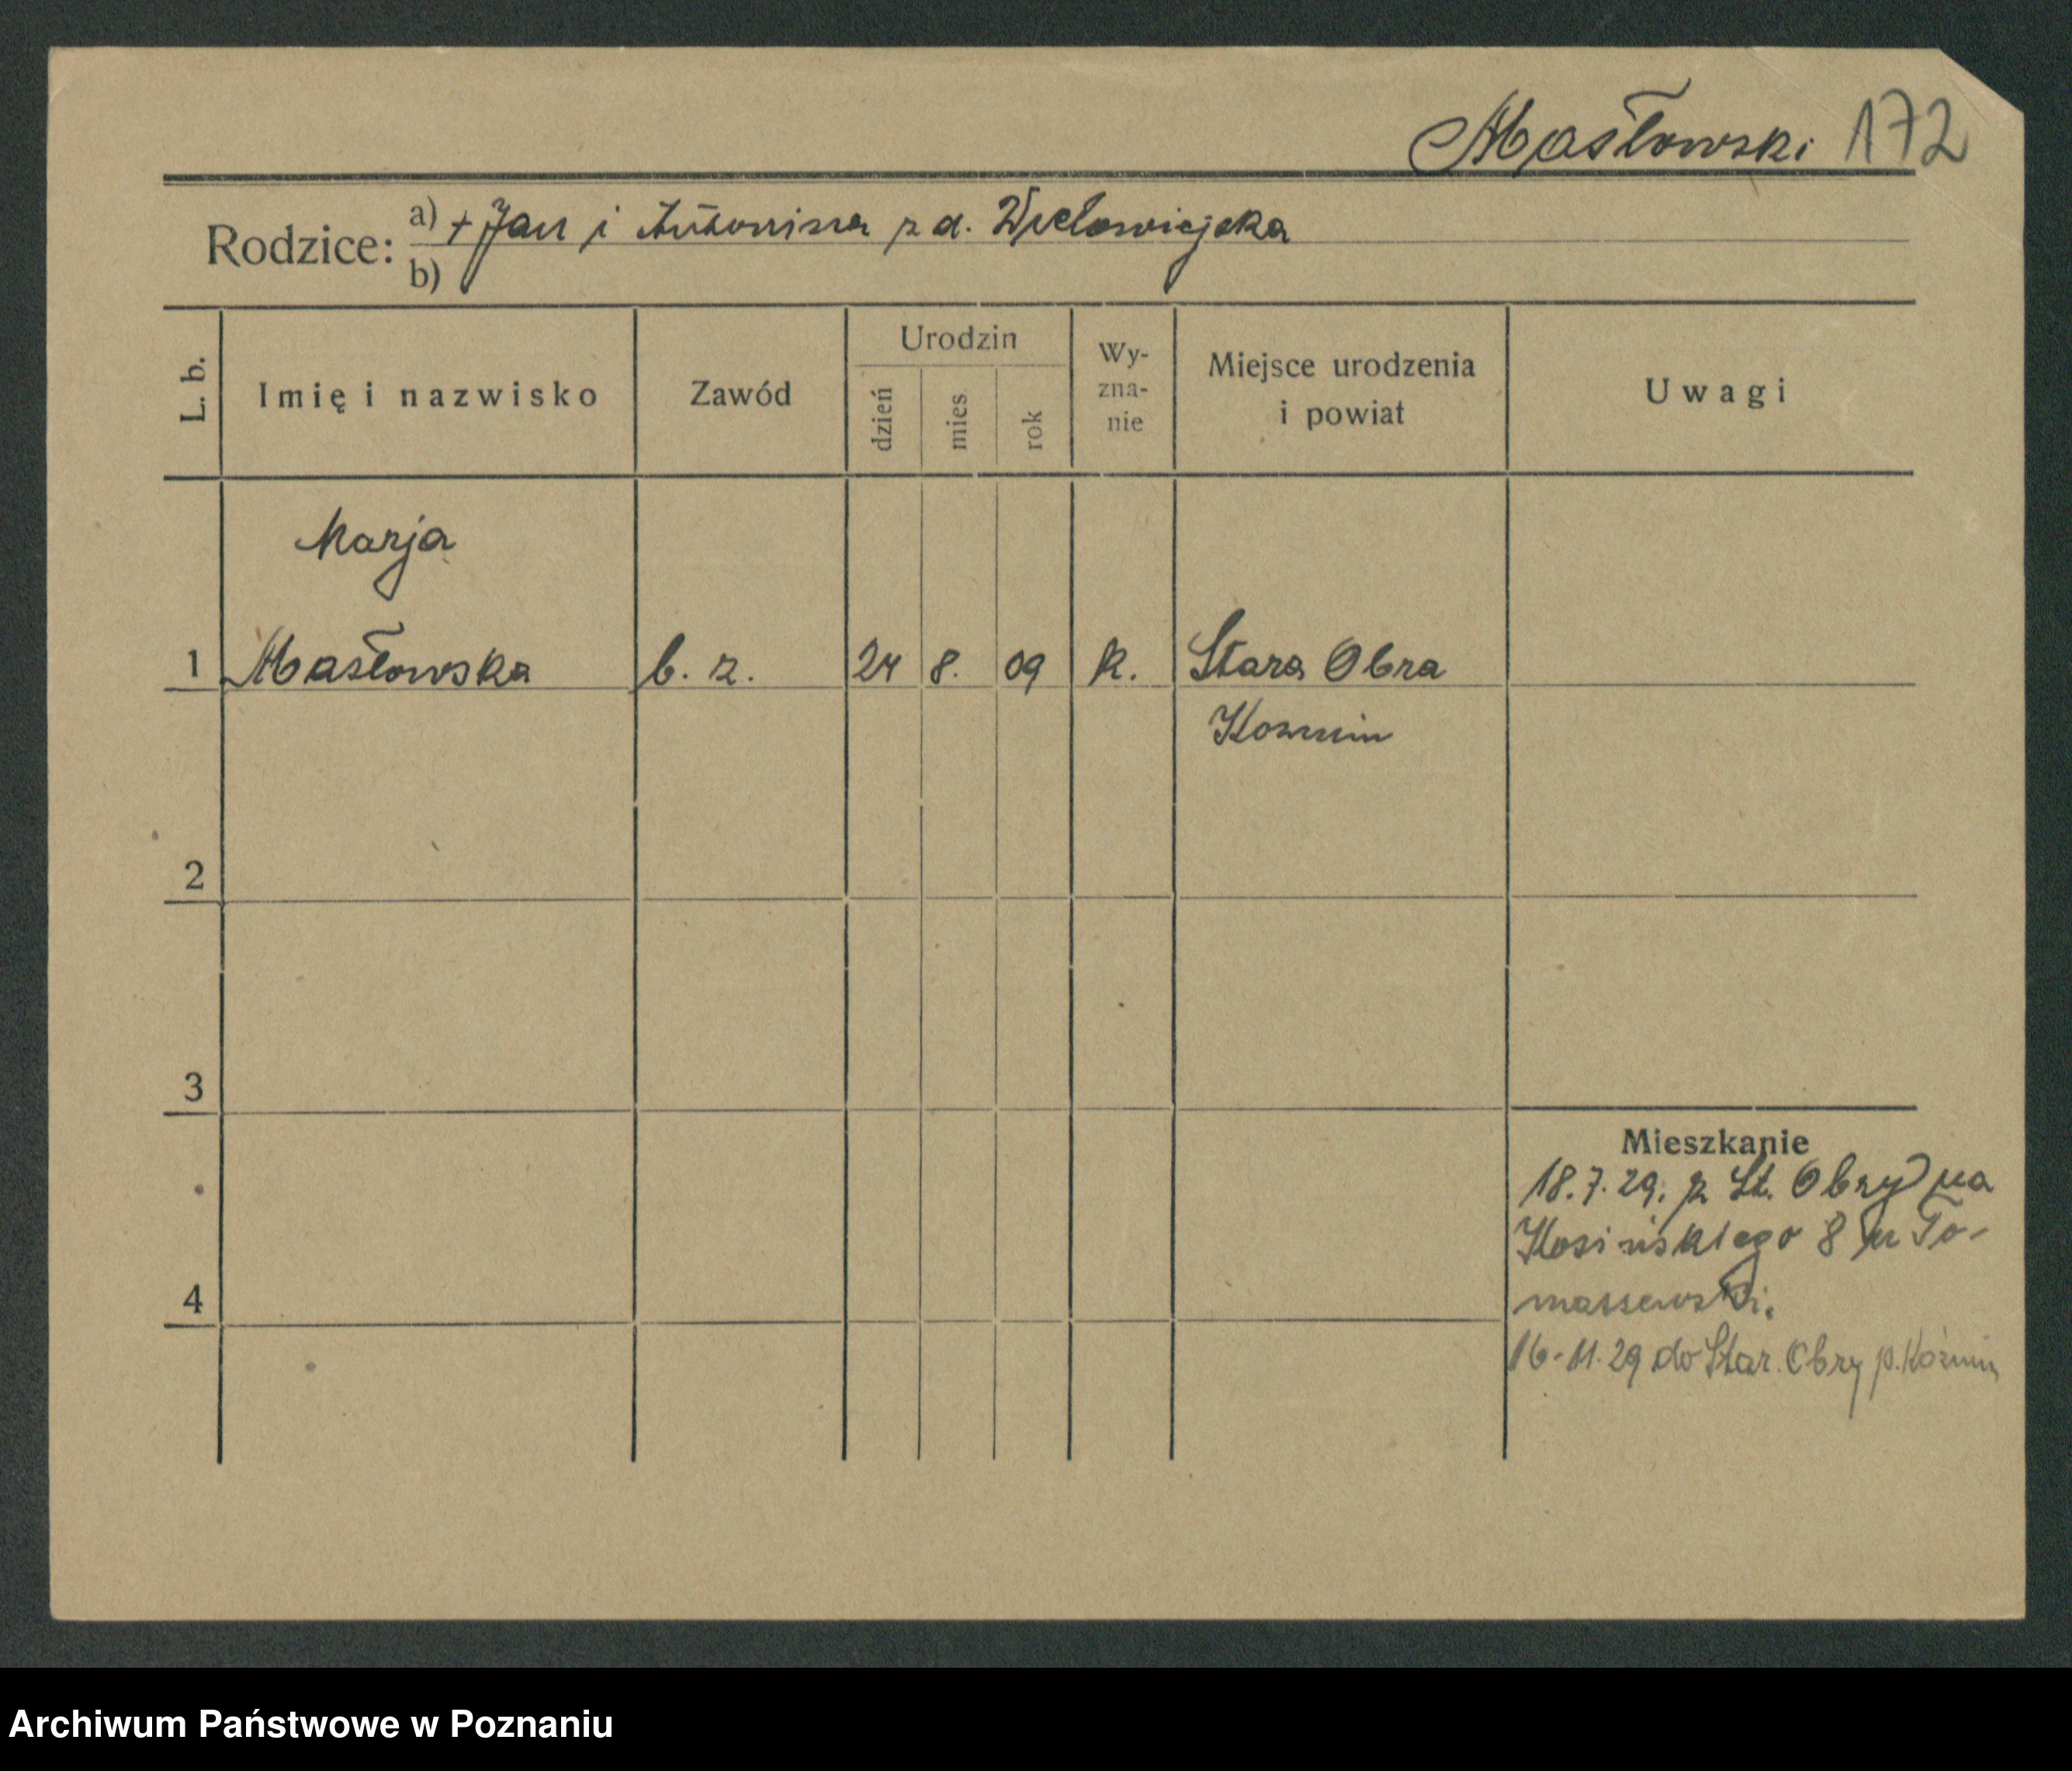 Masłowski 172
Rodzice: a) + Jan i Antonina z d. Wielowiejska
b)
L. b. Imię i nazwisko Zawód Urodzin dzień mies. rok Wy-zna-nie Miejsce urodzenia i powiat Uwagi
Marja
1 Masłowska b. z. 24 8. 09 k. Stara Obra
Kozmin
2
3
Mieszkanie
18.7.29. z St. Obry na
Kosińskiego 8 u To-
maszewski.
4
16-11.29 do Star. Obry p. Kózmin
Archiwum Państwowe w Poznaniu